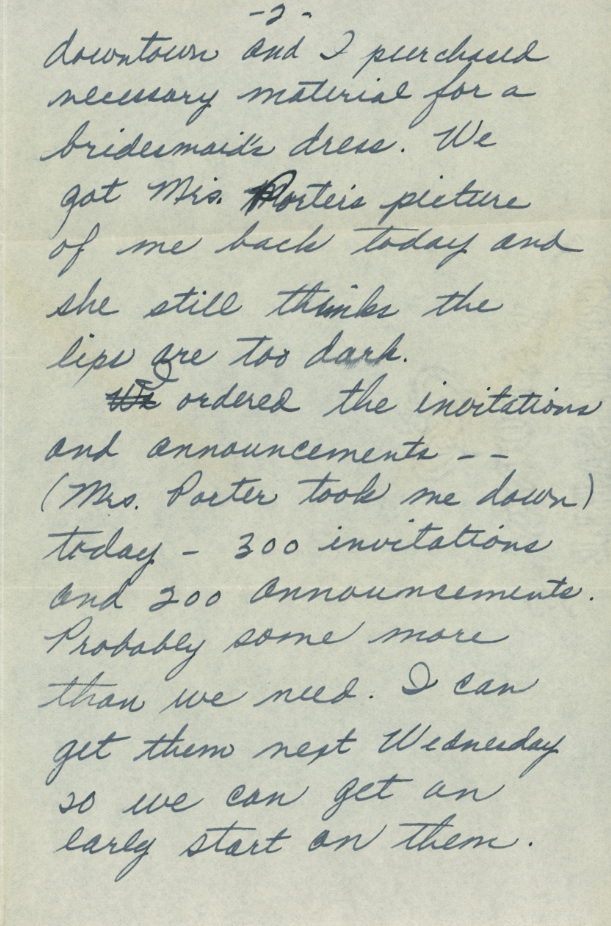 -2-
downtown and I purchased
necessary material for a
bridesmaid's dress. We
got Mrs. Porter's picture
of me back today and
she still thinks the
lips are too dark.
I ordered the invitations
and announcements - -
(Mrs. Porter took me down)
today - 300 invitations
and 200 announcements.
Probably some more
than we need. I can
get them next Wednesday
so we can get an
early start on them.